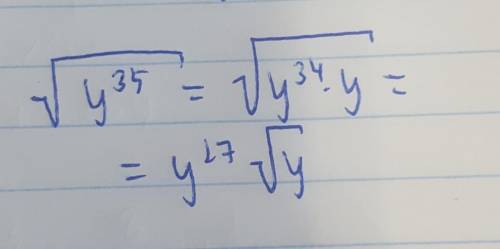 √(y³⁵) = √(y³⁴·y) =
= y²⁷ √y